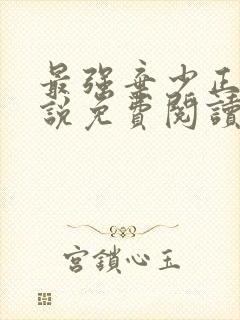 最强弃少正
說免費閱讀
宮鎖心玉